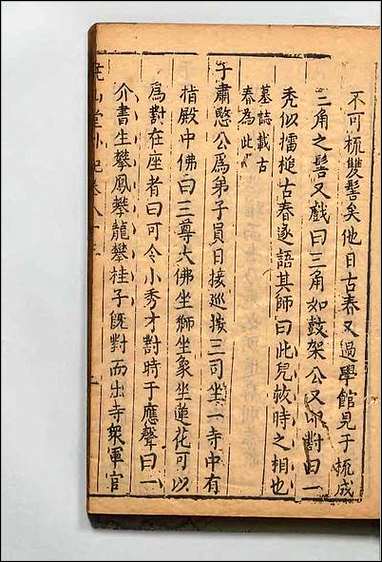 不可梳雙髻矣他日古春又過學館見于梳成
三角之髻又戲曰三角如鼓架公又卽對曰一
禿似擂槌古春遂語其師曰此兒救時之相也
墓誌載古
春為此
于肅愍公為弟子員日接巡按三司坐一寺中有
指殿中佛曰三尊大佛坐獅坐象坐蓮花可以
為對在座者曰可令小秀才對時于應聲曰一
介書生攀鳳攀龍攀桂子旣對而出寺眾軍官
堯山堂外紀卷八十